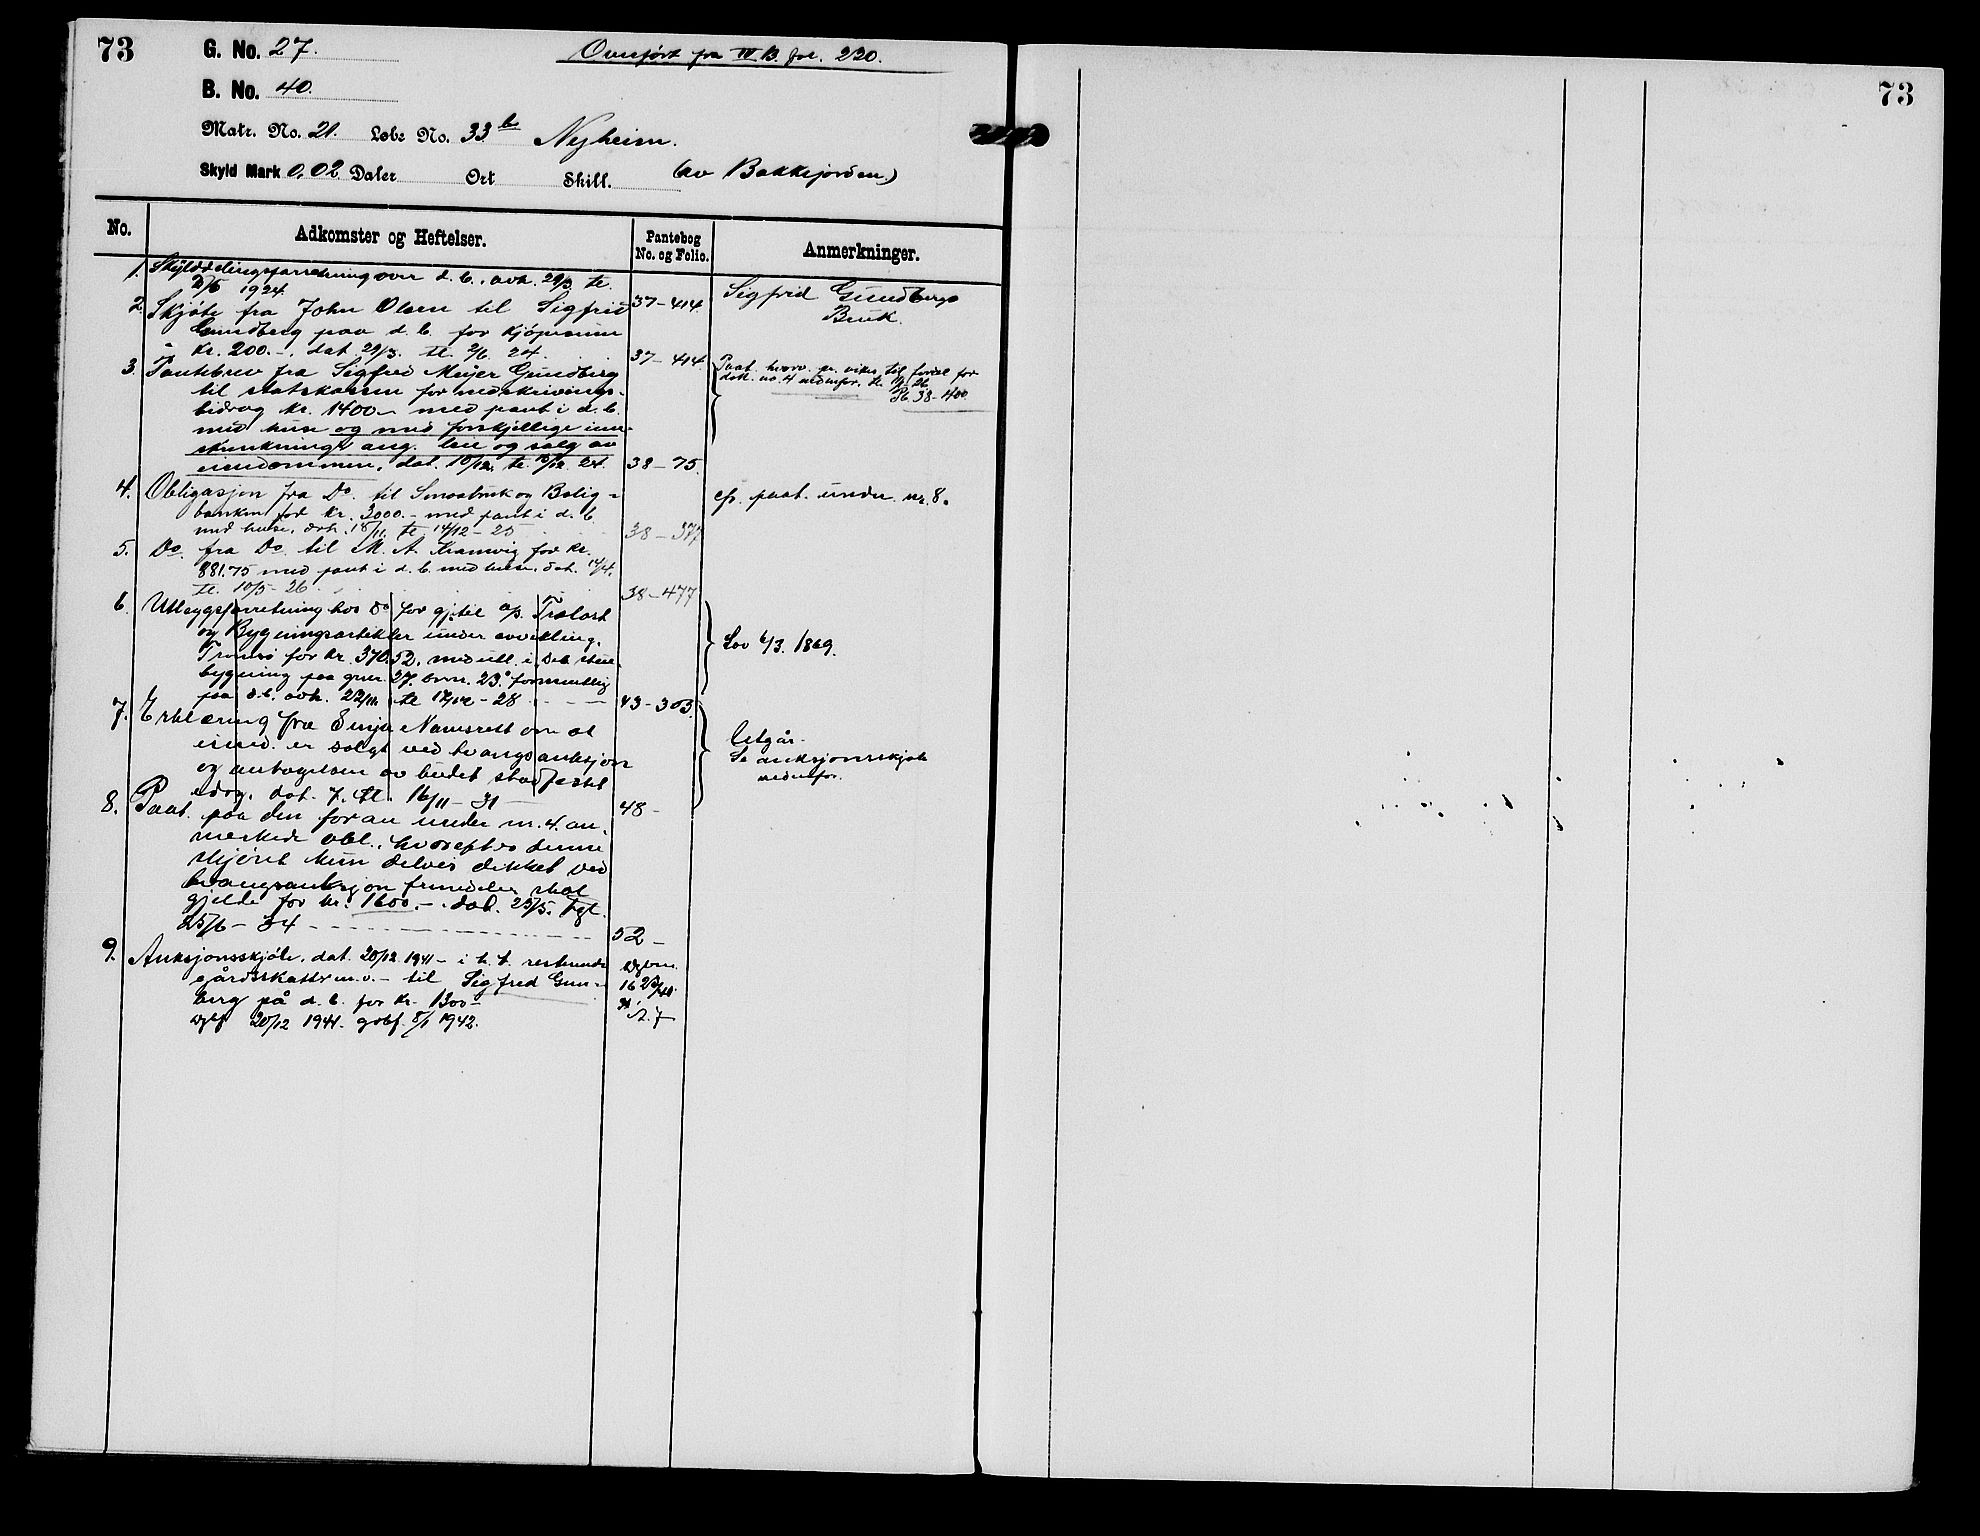 73
G. No. 27.
Overført fra IV B. fol. 220.
B. No. 40.
Matr. No. 21. Løbe No. 33 b Nyheim.
Skyld Mark 0,02 Daler Ort Skill. (av Bakkejorden.)
73
No. Adkomster og Heftelser. Pantebog No. og Folio. Anmerkninger.
1. Skylddelingsforretning over d. b., avh. 29/3. tl.
2/6 1924. 37-414.
2. Skjøte fra John Olsen til Sigfrid
Gundberg paa d. b. for kjøpesum
kr. 200.-, dat 29/3. tl. 2/6. 24. 37-414.
Sigfrid Gundbergs
Bruk.
3. Pantebrev fra Sigfred Meyer Gundberg
til statskassen for nedskrivnings-
bidrag kr. 1400.- med pant i d. b.
med huse og med forskjellige inn-
skrenkninger ang. leie og salg av
eiendommen, dat. 10/12. tl. 12/12. 24. 38-75.
Paat. hvorv. pr. viker til fordel for
dok. no. 4 nedenfor. tl. 26.
Pb. 38-400
4. Obligasjon fra Do. til Smaabruk og Bolig-
banken for kr. 3000.- med pant i d. b.
med huse, dat. 18/11. tl 14/12-25 38-377
cfr. paat. under nr. 8.
5. Do. fra Do. til M. A. Kramvig for kr.
881.75 med pant i d. b. med huse, dat. 14/4.
tl. 10/5-26. 38-477
6. Utlægsforretning hos Do for gj. til A/S. Trælast
og Bygningsartikler under avvikling,
Tromsø for kr. 370.52. med utl. i Deb stue-
bygning paa gnr. 27. bnr. 23. formentlig
paa d. b. avh. 22/11. tl 17/12-28 43-303.
Lov 6/3. 1869.
7. Erklæring fra Senja Namsrett om at
eiend. er solgt ved tvangsauksjon
og antagelsen av budet stadfestet
s. dag, dat. 7. tl. 16/11-31 48-
Utgår.
Se auksjonsskjøte
nedenfor.
8. Paat. paa den foran under nr. 4. an-
merkede obl., hvorefter denne
skjønt kun delvis dekket ved
tvangsauksjon fremdeles skal
gjelde for kr. 1600.-. dat. 25/5. tgl.
25/6-34 52-
9. Auksjonsskjøte, dat. 20/12 1941 - i h. t. resterende
gårdsskatter m.v. - til Sigfred Gun-
berg på d. b. for kr. 1300-
dgbf 20/12 1941. gobf. 8/1 1942.